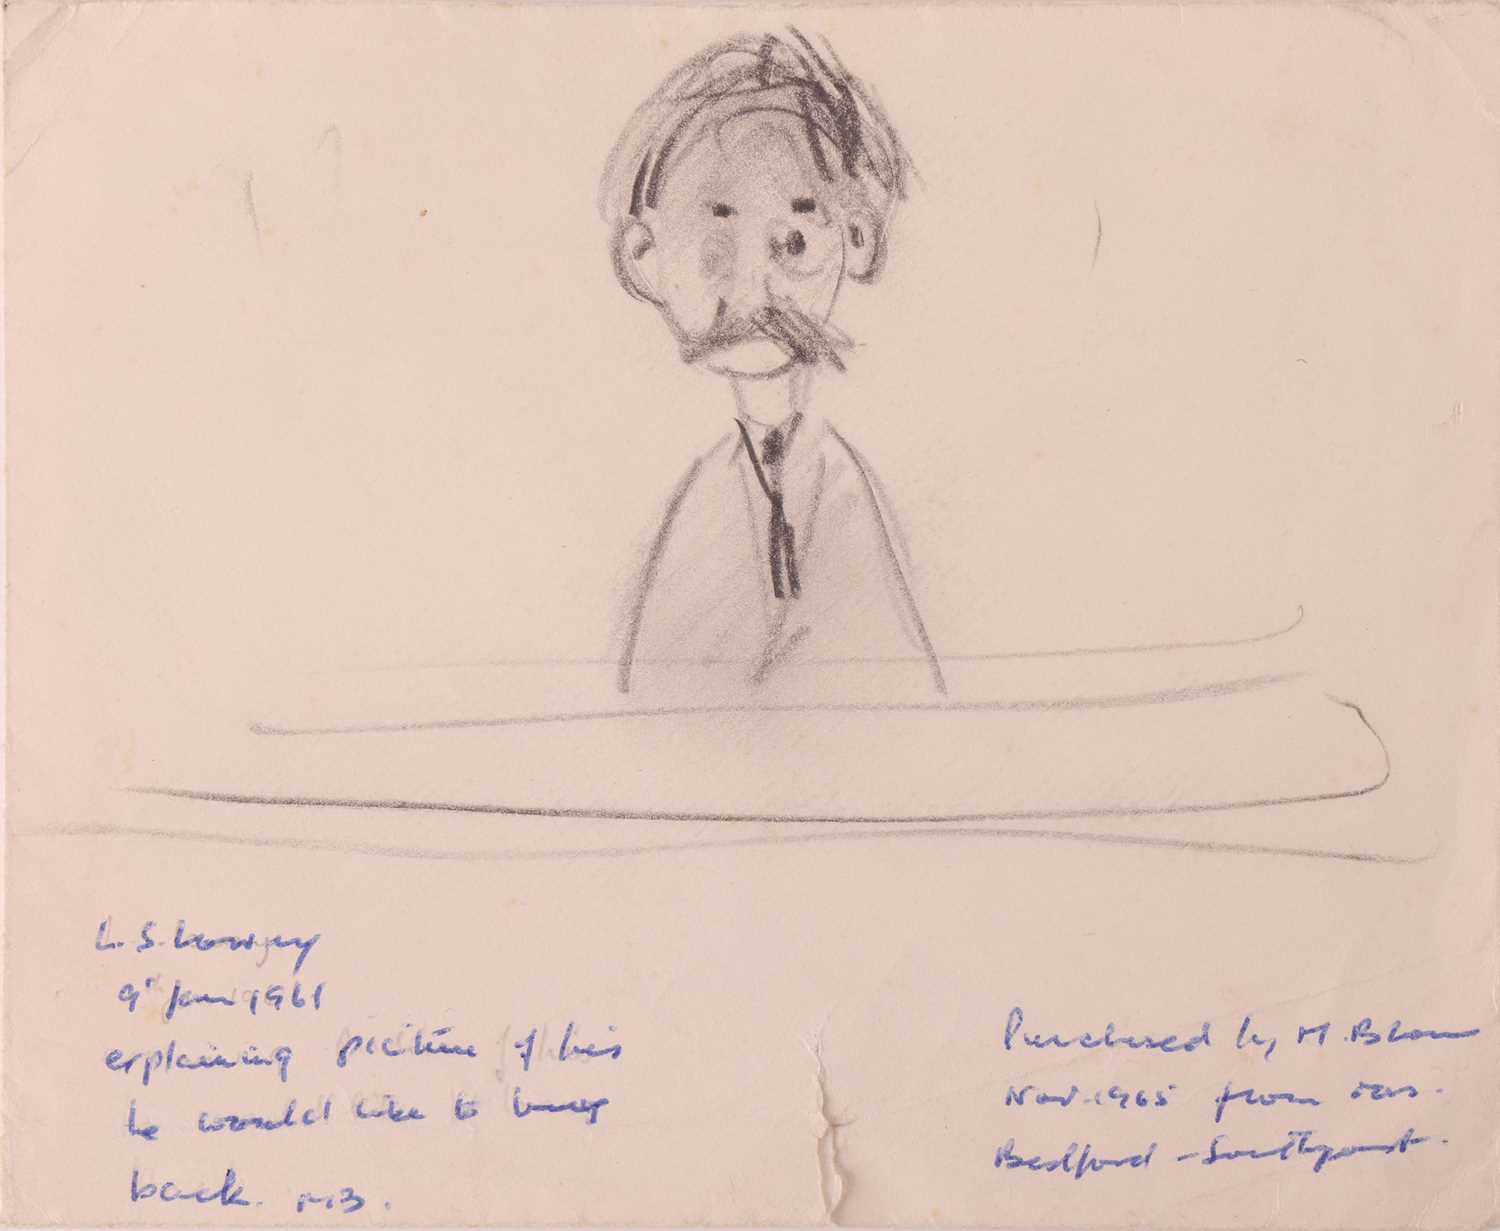 L. S. Lowry
9th Jan 1961
explaining picture of his
he would like to buy
back. M.B.
Purchased by M. Bloom
Nov. 1965 from Mrs.
Bedford - Southport.